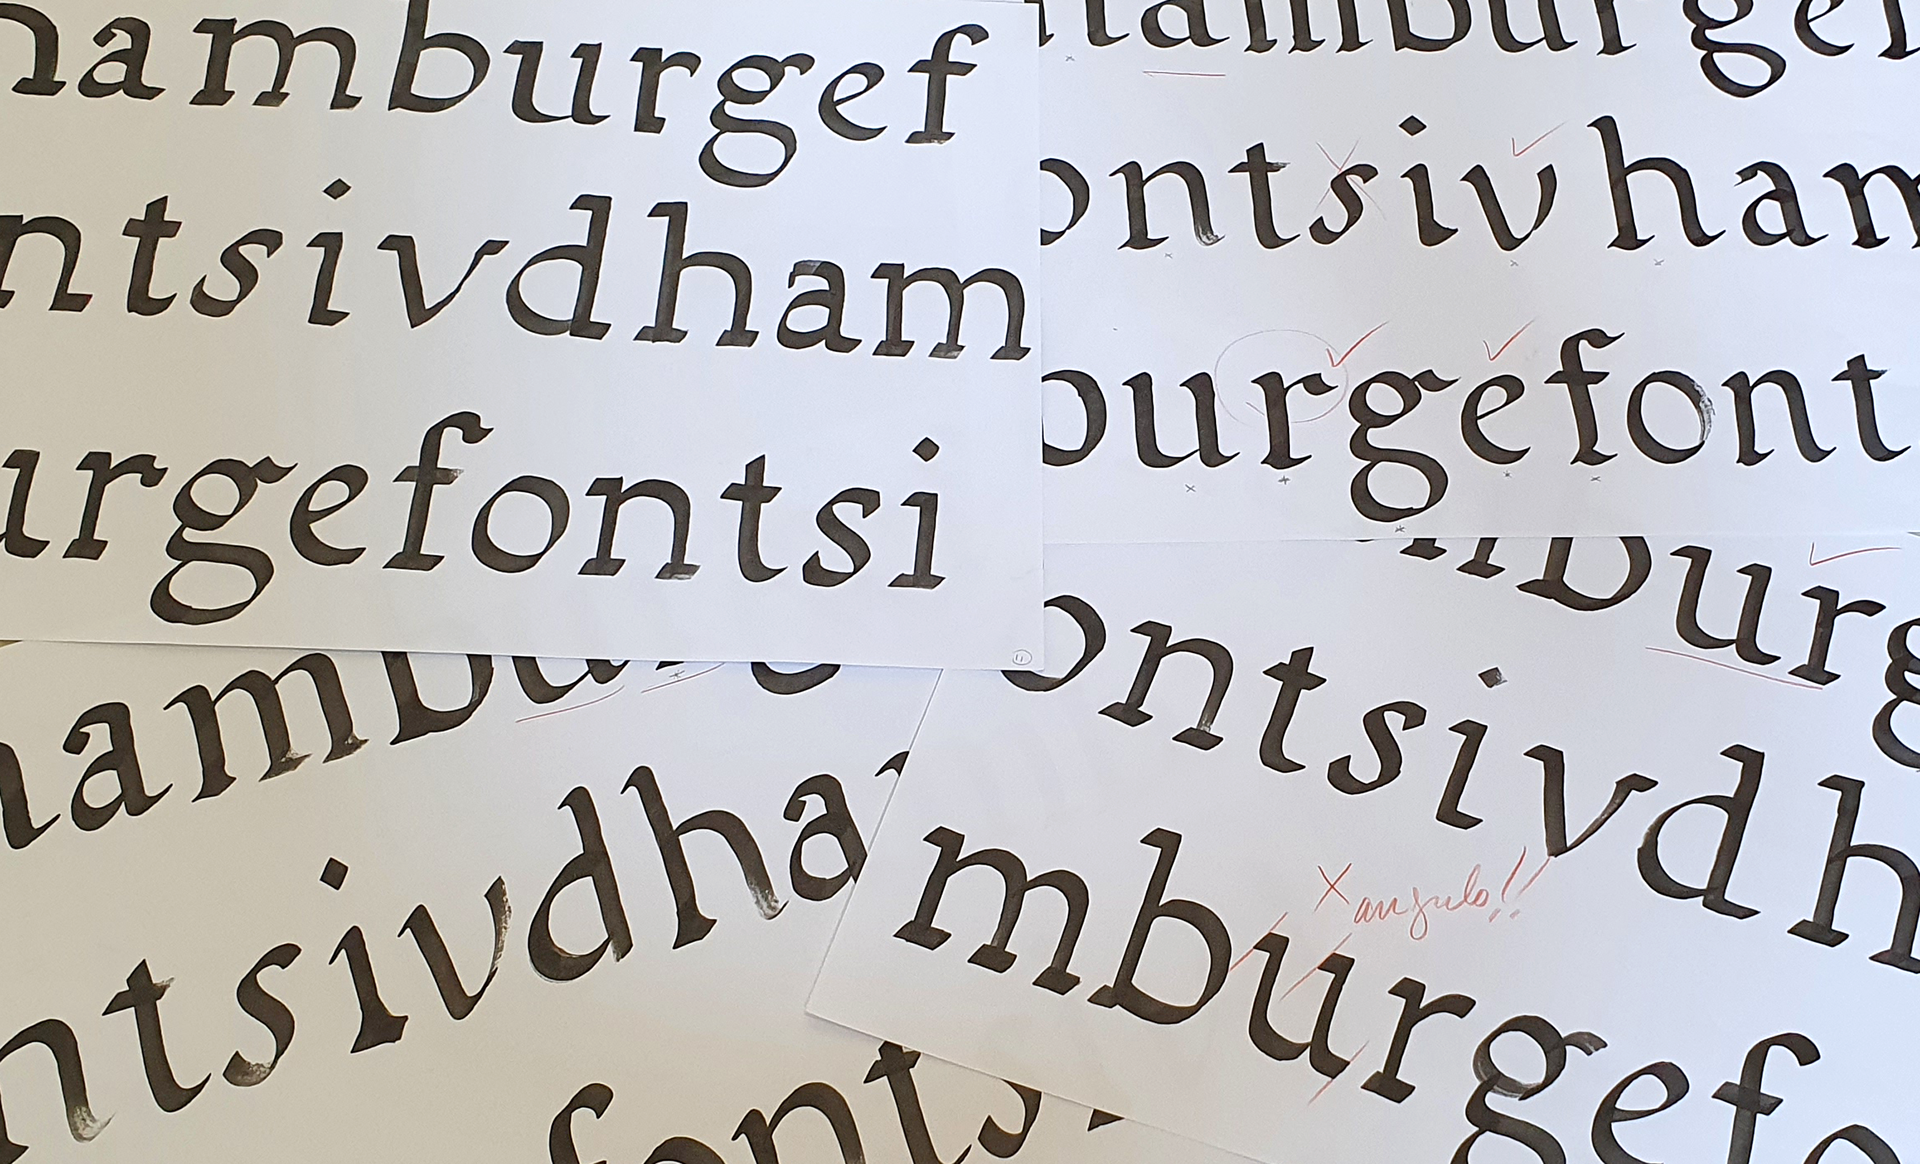 hamburgef
ntsivdham
urgefontsi
11
hamburgef
ontsivham
ourgefont
hambu
ntsivdha
font
mburg
ontsivdh
x angulo!!
mburgefo